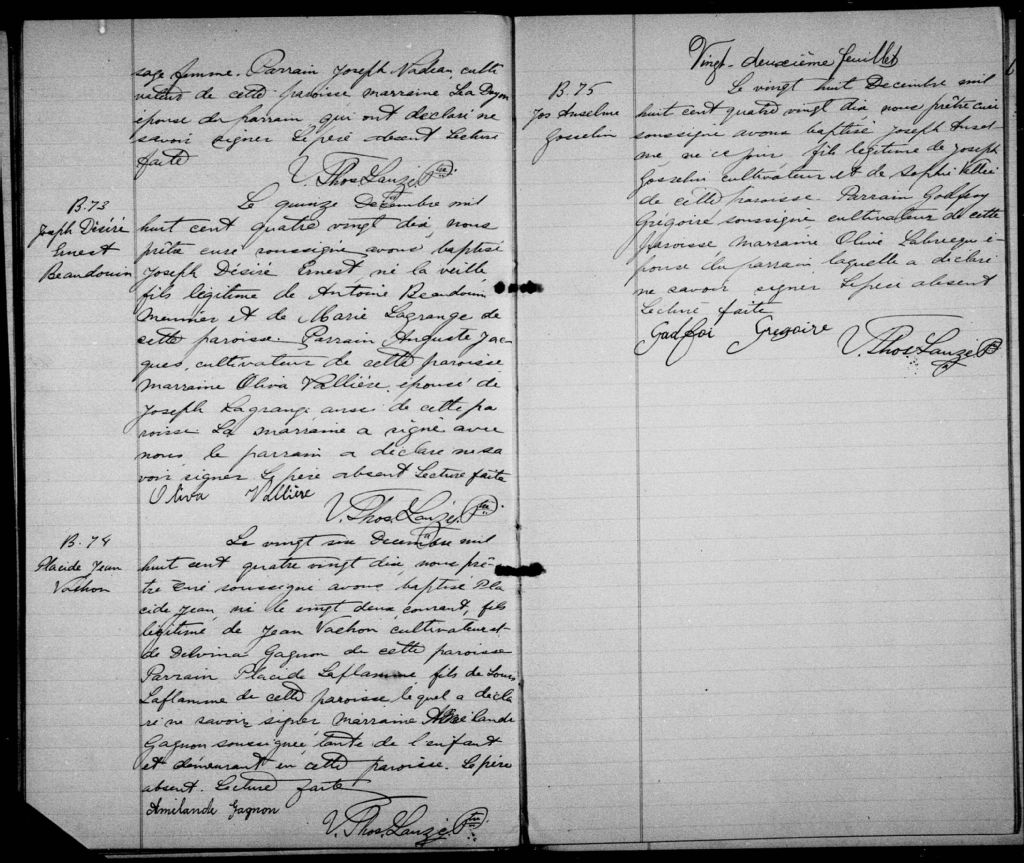 sage femme. Parrain Joseph Nadeau, culti
vateur de cette paroisse marraine
épouse du parrain qui ont déclaré ne
savoir signer Le père absent Lecture
faite
V. Thos. Lauzé Ptre
B. 73
Joseph Désiré
Ernest
Beaudouin
Le quinze Decembre mil
huit cent quatre vingt dix nous
prêtre curé soussigné avons baptisé
Joseph Désiré Ernest né la veille
fils légitime de Antoine Beaudouin
meunier et de Marie Lagrange de
cette paroisse. Parrain Auguste Jac-
ques, cultivateur de cette paroisse
Marraine Oliva Vallière, épouse de
Joseph Lagrange aussi de cette pa
roisse. La marraine a signé avec
nous le parrain a déclaré ne sa
voir signer. Le père absent Lecture faite
Oliva Vallière
V. Thos. Lauzé, Ptre
B. 74
Placide Jean
Vachon
Le vingt six Decembre mil
huit cent quatre vingt dix, nous prê-
tre curé soussigné avons baptisé Pla
cide Jean, né le vingt deux courant, fils
légitime de Jean Vachon cultivateur et
de Delvina Gagnon de cette paroisse
Parrain Placide Laflamme fils de Louis
Laflamme de cette paroisse lequel a décla
ré ne savoir signer marraine
Gagnon soussignée tante de l'enfant
et demeurant en cette paroisse. Le père
absent. Lecture faite
Amilande Gagnon
V. Thos. Lauzé Ptre
Vingt-deuxième feuillet
B. 75
Jos Anselme
Gosselin
Le vingt huit Decembre mil
huit cent quatre vingt dix nous prêtre curé
soussigné avons baptisé Joseph Ansel-
me, né ce jour, fils légitime de Joseph
Gosselin cultivateur et de Sophie Vallée
de cette paroisse. Parrain Godfroy
Grégoire soussigné cultivateur de cette
paroisse Marraine Olive Labrecque é-
pouse du parrain laquelle a déclaré
ne savoir signer Le père absent
Lecture faite
Godfoi Gregoire
V. Thos. Lauzé P